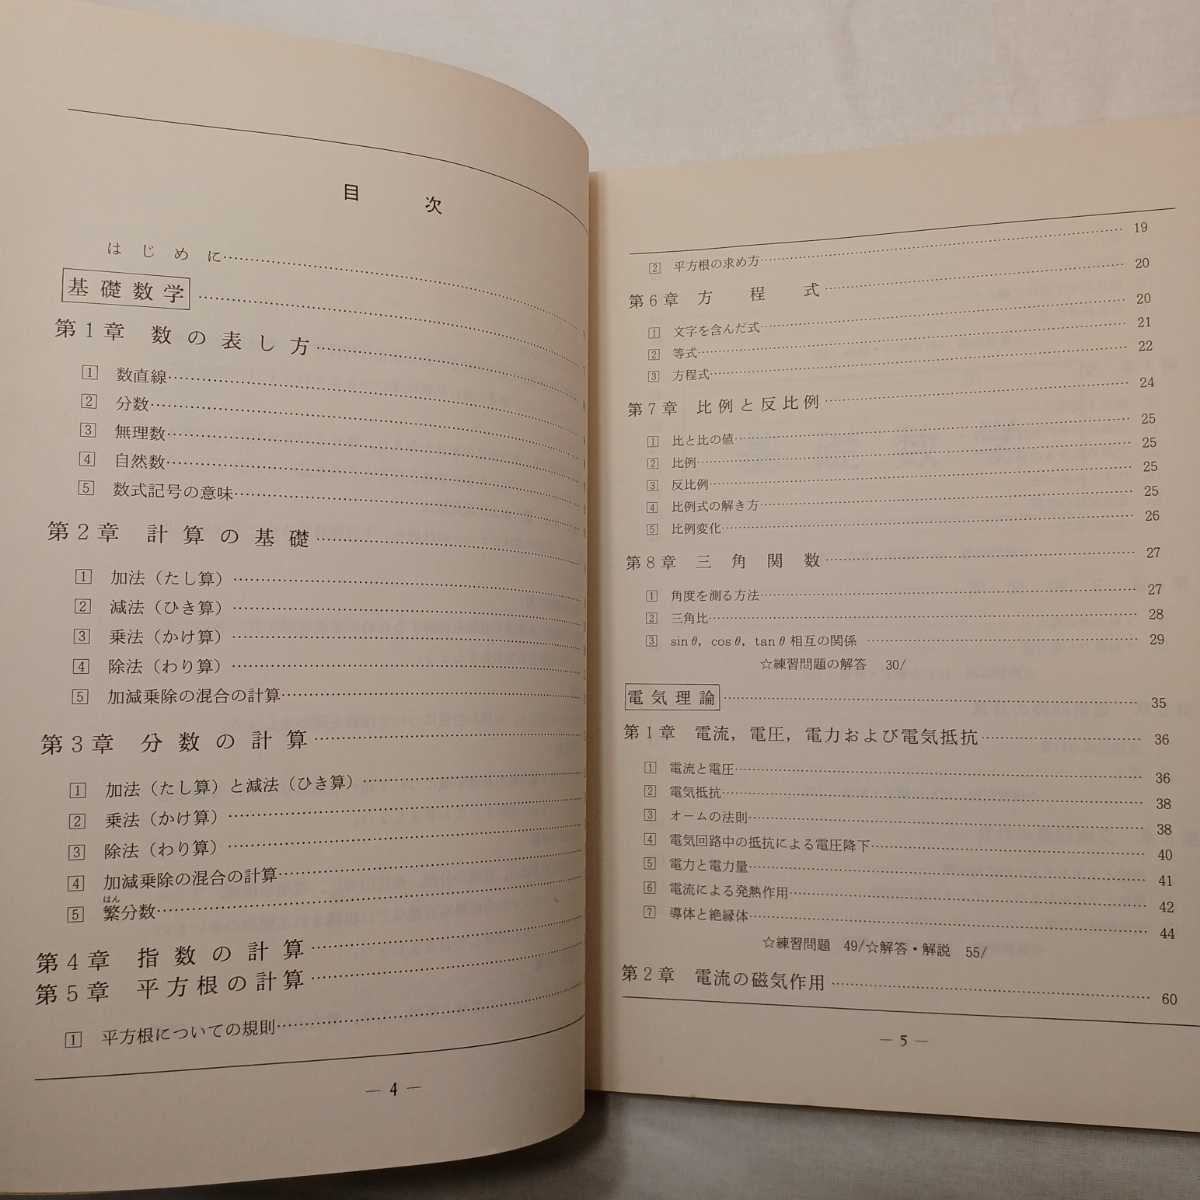 目次
はじめに
基礎数学
第1章 数の表し方
1 数直線
2 分数
3 無理数
4 自然数
5 数式記号の意味
第2章 計算の基礎
1 加法（たし算）
2 減法（ひき算）
3 乗法（かけ算）
4 除法（わり算）
5 加減乗除の混合の計算
第3章 分数の計算
1 加法（たし算）と減法（ひき算）
2 乗法（かけ算）
3 除法（わり算）
4 加減乗除の混合の計算
はん
5 繁分数
第4章 指数の計算
第5章 平方根の計算
1 平方根についての規則
— 4 —
2 平方根の求め方 19
第6章 方程式 20
1 文字を含んだ式 20
2 等式 21
3 方程式 22
第7章 比例と反比例 24
1 比と比の値 25
2 比例 25
3 反比例 25
4 比例式の解き方 25
5 比例変化 26
第8章 三角関数 27
1 角度を測る方法 27
2 三角比 28
3 sinθ, cosθ, tanθ相互の関係 29
☆練習問題の解答 30/
電気理論 35
第1章 電流，電圧，電力および電気抵抗 36
1 電流と電圧 36
2 電気抵抗 38
3 オームの法則 38
4 電気回路中の抵抗による電圧降下 40
5 電力と電力量 41
6 電流による発熱作用 42
7 導体と絶縁体 44
☆練習問題 49/☆解答・解説 55/
第2章 電流の磁気作用 60
— 5 —